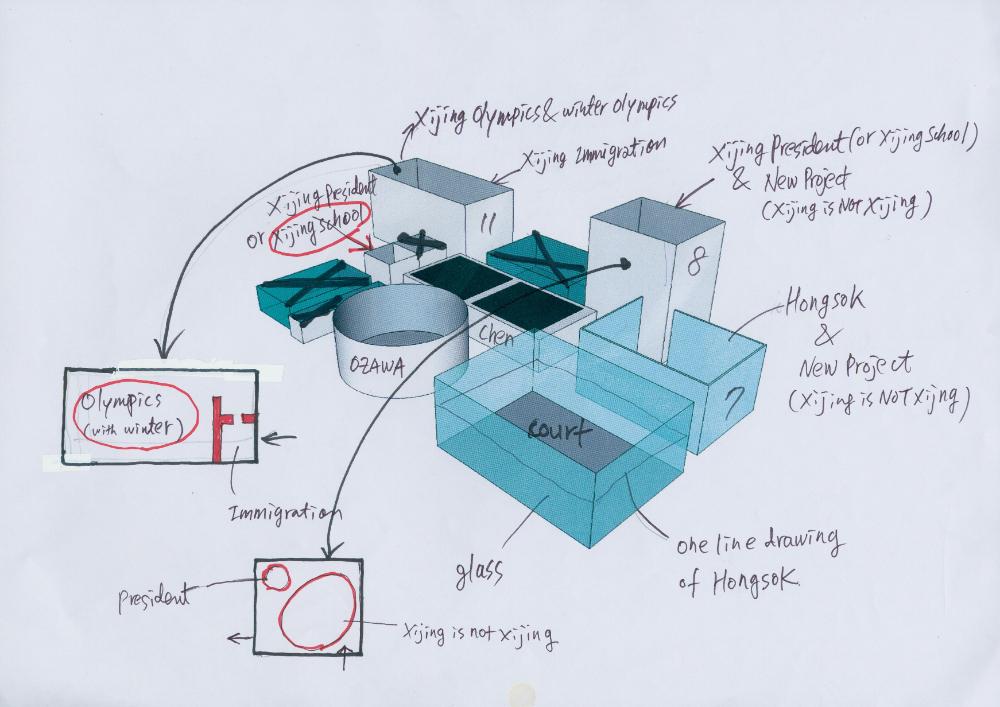 Xijing Olympics & winter olympics
Xijing Immigration
Xijing President (or Xijing School)
& New Project
(Xijing is NOT Xijing)
Xijing President
or Xijing School
11
8
Hongsok
&
New Project
(Xijing is NOT Xijng)
7
Chen
OZAWA
court
Olympics
(with winter)
Immigration
glass
one line drawing
of Hongsok
President
Xijing is not xijing